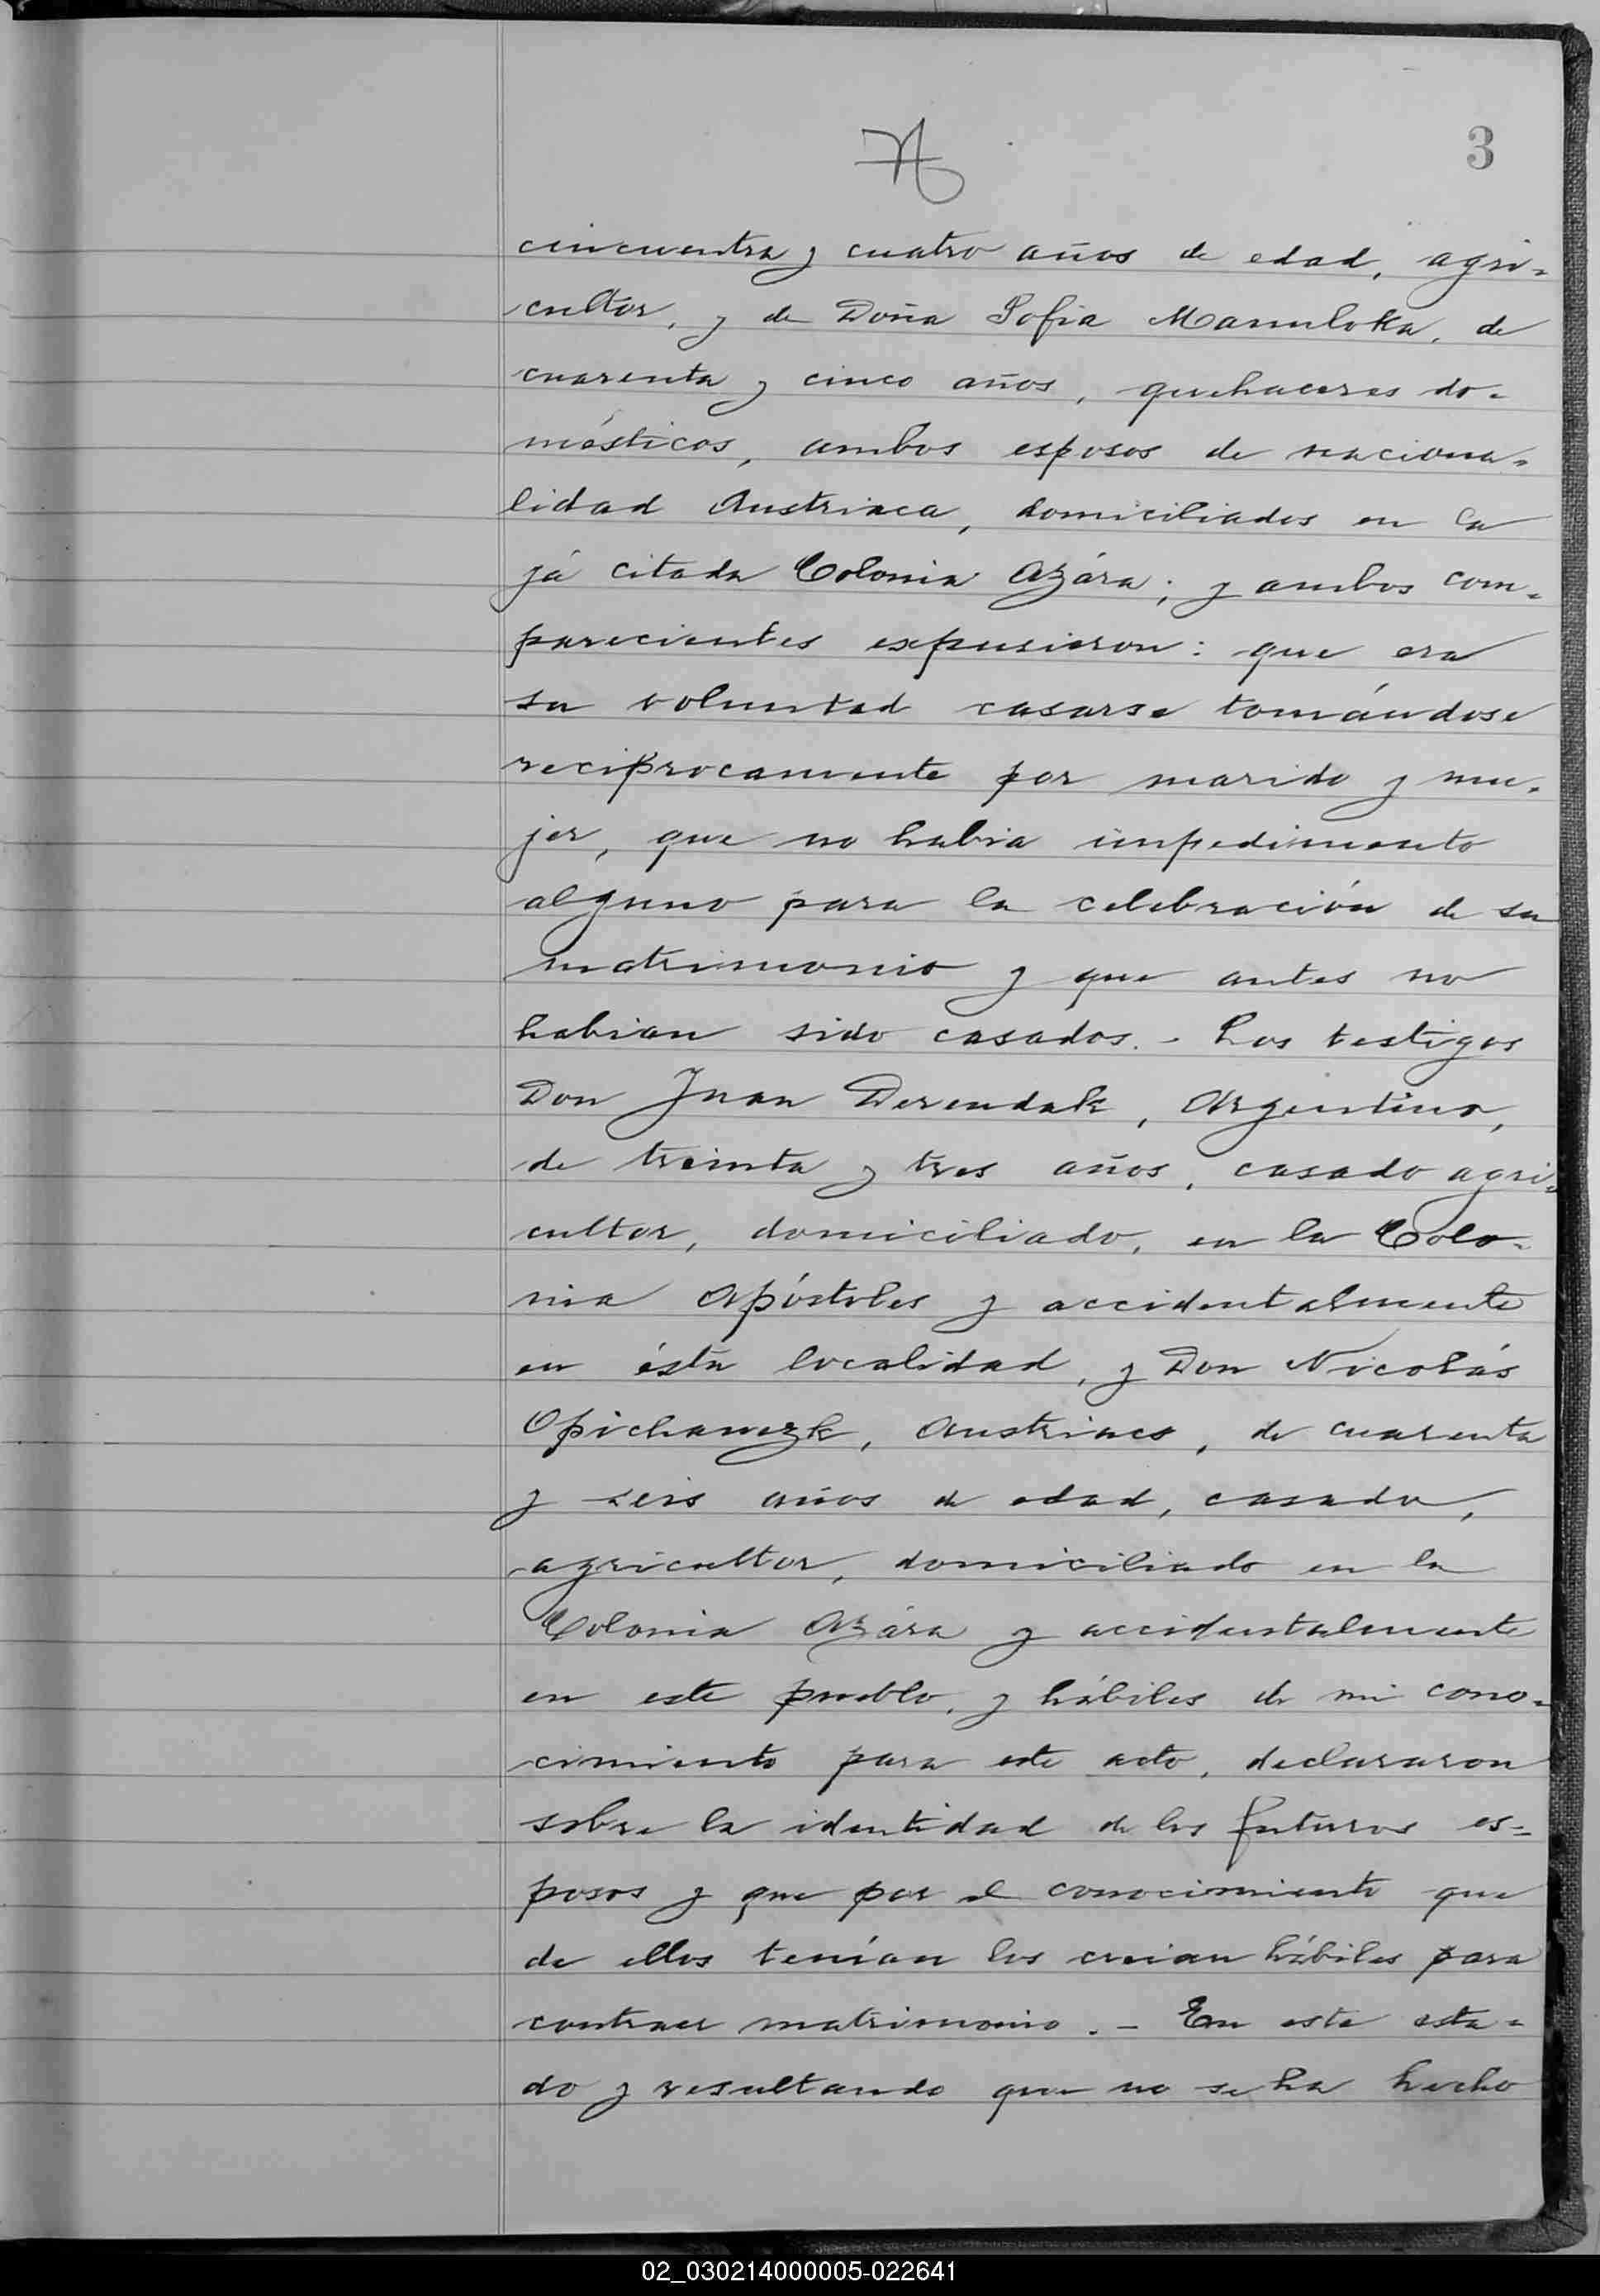 3
cincuenta y cuatro años de edad, agri-
cultor, y de Doña Sofia Manuloka, de
cuarenta y cinco años, quehaceres do-
mésticos, ambos esposos de naciona-
lidad Austriaca, domiciliados en la
já citada Colonia Azára; y ambos com-
parecientes expusieron: que era
su voluntad casarse tomándose
reciprocamente por marido y mu-
jer, que no habia impedimento
alguno para la celebración de su
matrimonio y que antes no
habian sido casados.- Los testigos
Don Juan Derendak, Argentino,
de treinta y tres años, casado agri-
cultor, domiciliado, en la Colo-
nia Apóstoles y accidentalmente
en ésta localidad, y Don Nicolás
Opichawzk, Austriaco, de cuarenta
y seis años de edad, casado,
agricultor, domiciliado en la
Colonia Azára y accidentalmente
en este pueblo, y hábiles de mi cono-
cimiento para este acto, declararon
sobre la identidad de los futuros es-
posos y que por el conocimiento que
de ellos tenían los creian hábiles para
contraer matrimonio.- En este esta-
do y resultando que no se ha hecho
02_030214000005-022641